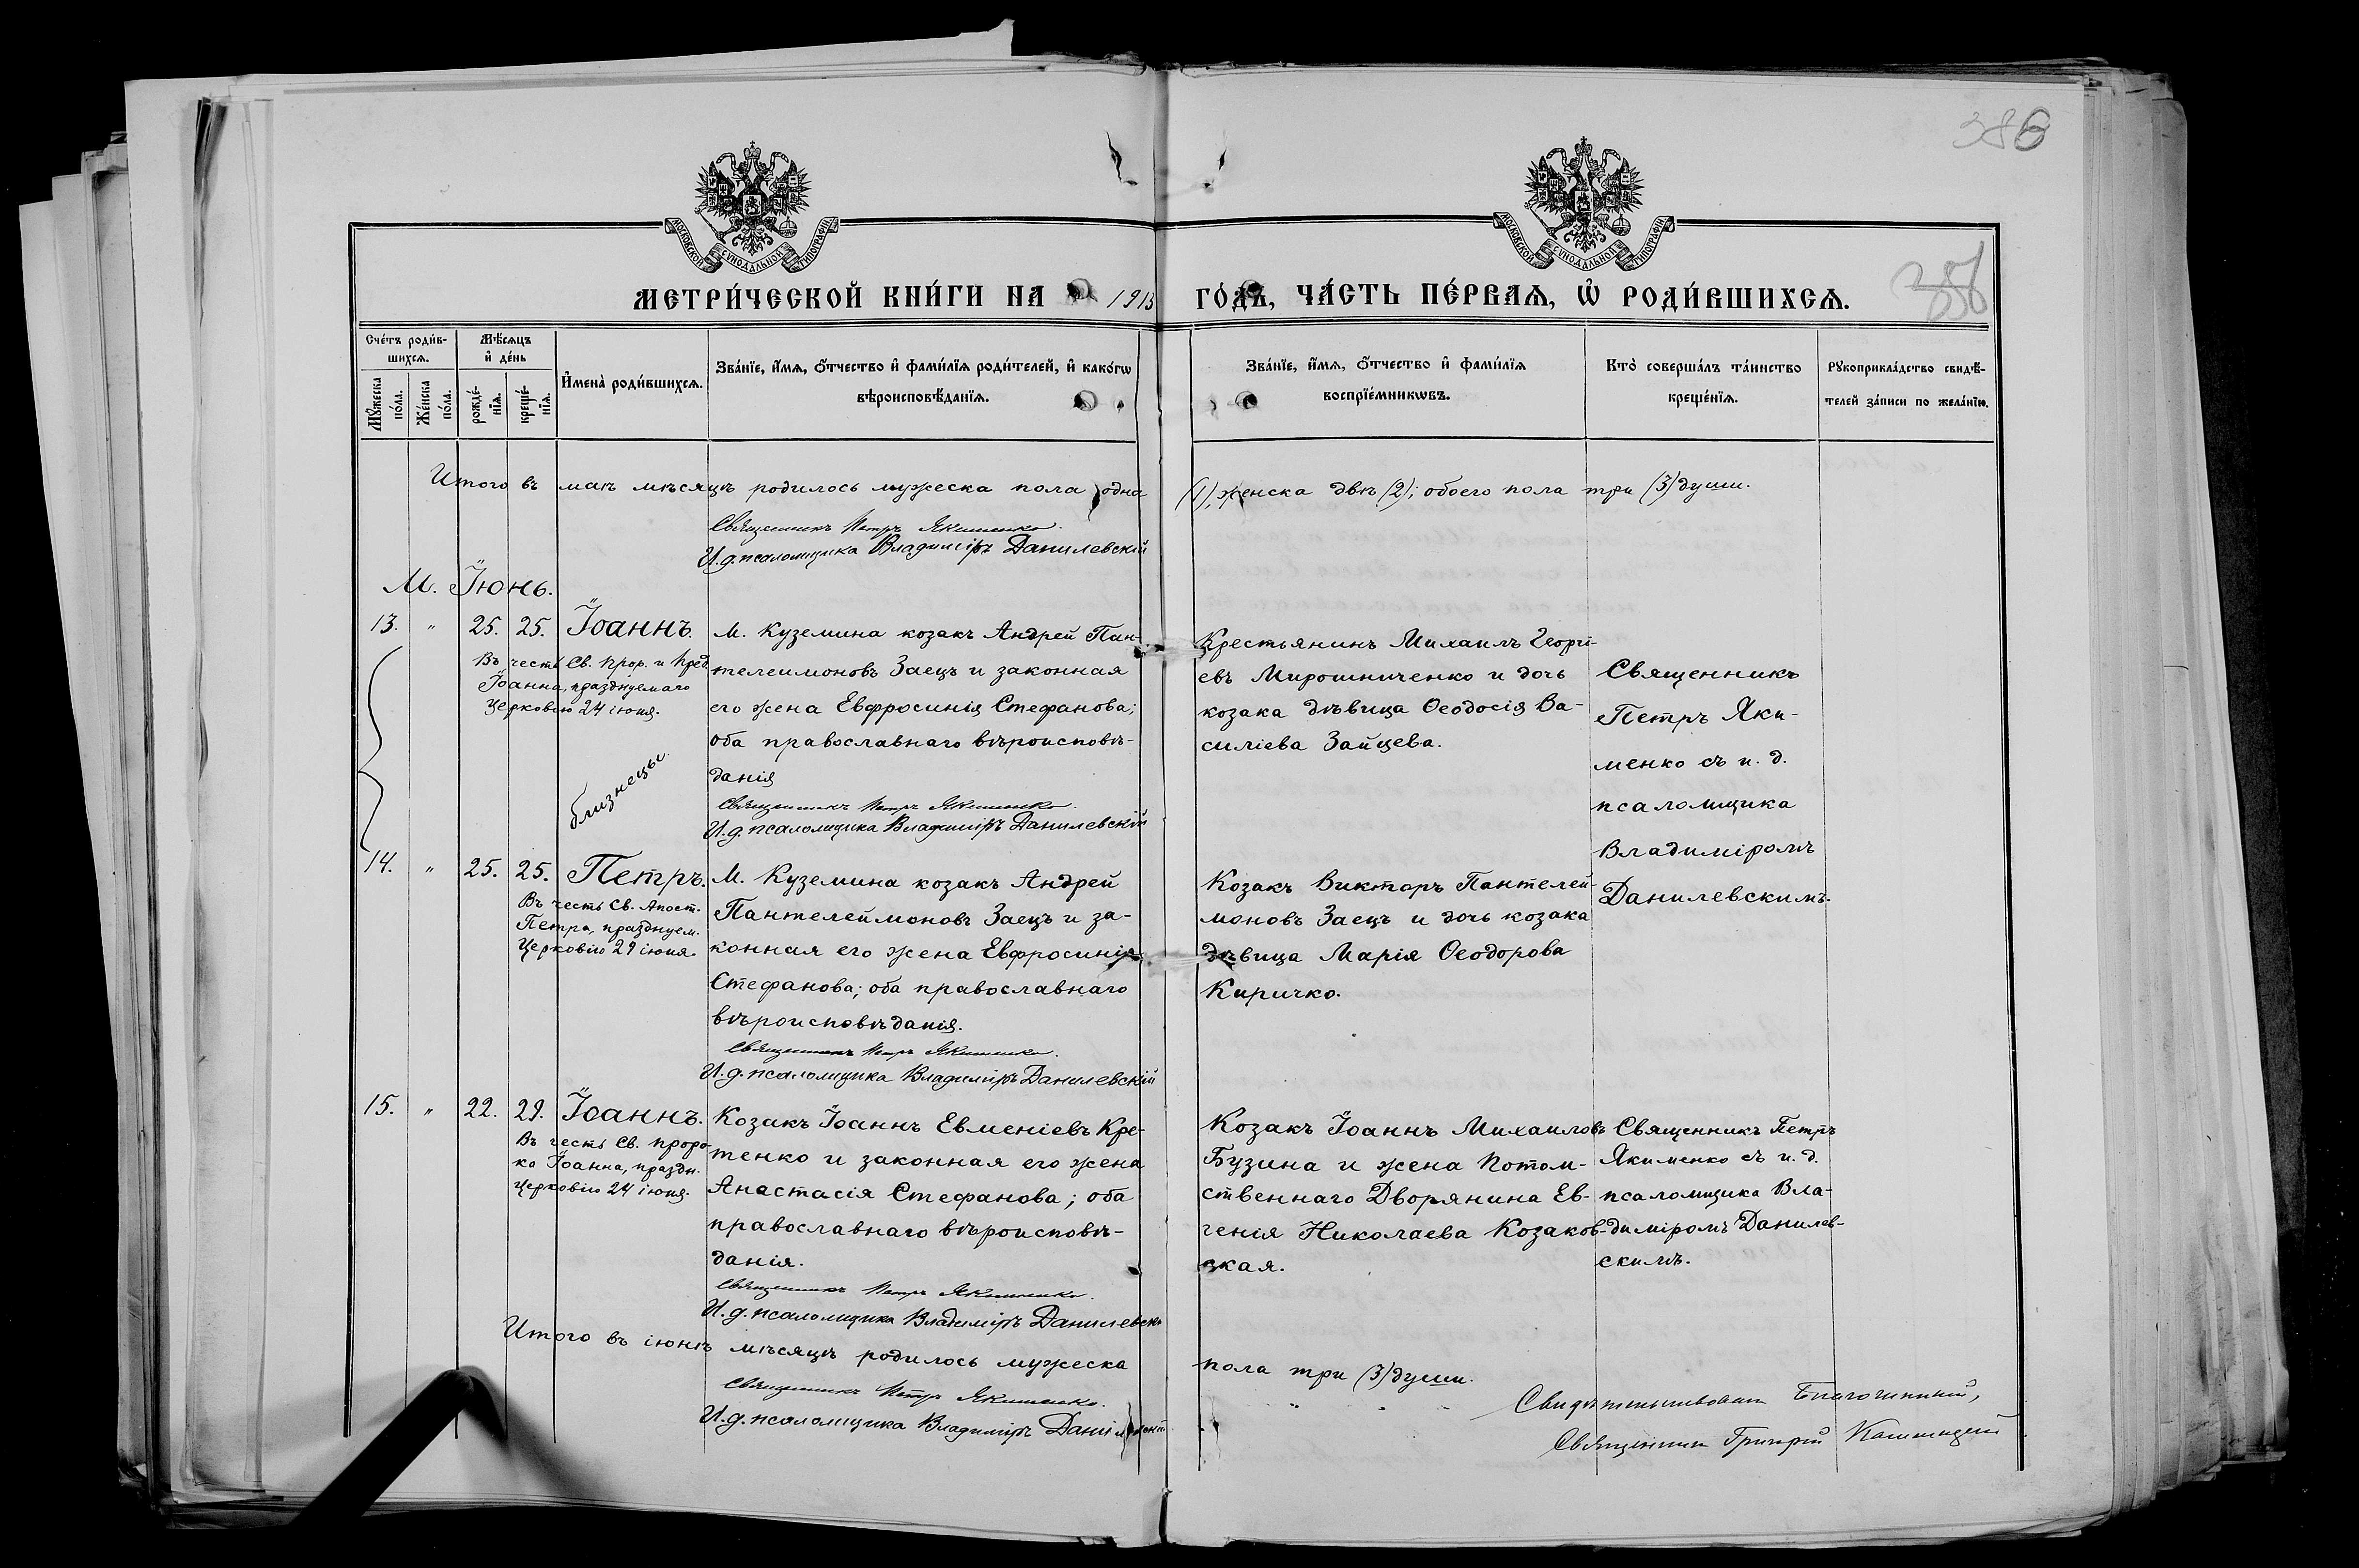 386
358
МОСКОВСКОЙ СѴНОДАЛЬНОЙ ТИПОГРАФІИ
МОСКОВСКОЙ СѴНОДАЛЬНОЙ ТИПОГРАФІИ
МЕТРИ́ЧЕСКОЙ КНИ́ГИ НА 1913 ГО́ДЪ, ЧА́СТЬ ПЕ́РВАѦ, Ѡ҆ РОДИ́ВШИХСѦ.
Сче́тъ роди́в-
шихсѧ.
Мѹ́жеска
по́ла.
Же́нска
по́ла.
Мѣ́сѧцъ
и҆ де́нь
рожде́-
нїѧ.
креще́-
нїѧ.
И҆мена̀ роди́вшихсѧ.
Зва́нїе, и҆́мѧ, ѻ҆́тчество и҆ фами́лїѧ роди́телей, и҆ како́гѡ
вѣроисповѣ́данїѧ.
Зва́нїе, и҆́мѧ, ѻ҆́тчество и҆ фами́лїѧ
воспрїе́мникѡвъ.
Кто̀ соверша́лъ та́инство
креще́нїѧ.
Рѹкоприкла́дство свидѣ́-
телей за́писи по жела́нїю.
Итого въ маѣ мѣсяцѣ родилось мужеска пола одна (1), женска двѣ (2); обоего пола три (3) души.
Священникъ Петръ Якименко.
И.д. псаломщика Владиміръ Данилевскій
М. Іюнь.
13. " 25. 25. Іоаннъ.
Въ честь Св. Прор. и Пред.
Іоанна, празднуемаго
Церковію 24 іюня.
М. Куземина козакъ Андрей Пан-
телеимоновъ Заецъ и законная
его жена Евфросинія Стефанова;
оба православнаго вѣроисповѣ-
данія
Священникъ Петръ Якименко.
И.д. псаломщика Владиміръ Данилевскій
Крестьянинъ Михаилъ Георгі-
евъ Мирошниченко и дочь
козака дѣвица Ѳеодосія Ва-
силіева Зайцева.
Священникъ
Петръ Яки-
менко съ и. д.
псаломщика
Владиміромъ
Данилевскимъ.
близнецы.
14. " 25. 25. Петръ.
Въ честь Св. Апост.
Петра, празднуем.
Церковію 29 іюня.
М. Куземина козакъ Андрей
Пантелеймоновъ Заецъ и за-
конная его жена Евфросинія
Стефанова; оба православнаго
вѣроисповѣданія.
Священникъ Петръ Якименко.
И.д. псаломщика Владиміръ Данилевскій
Козакъ Викторъ Пантелей-
моновъ Заецъ и дочь козака
дѣвица Марія Ѳеодорова
Киричко.
15. " 22. 29. Іоаннъ.
Въ честь Св. Проро-
ка Іоанна, праздн.
Церковію 24 іюня.
Козакъ Іоаннъ Евменіевъ Кре-
тенко и законная его жена
Анастасія Стефанова; оба
православнаго вѣроисповѣ-
данія.
Священникъ Петръ Якименко.
И.д. псаломщика Владиміръ Данилевскі
Козакъ Іоаннъ Михаиловъ
Бузина и жена Потом-
ственнаго Дворянина Ев-
генія Николаева Козаков-
ская.
Священникъ Петръ
Якименко съ и. д.
псаломщика Вла-
диміромъ Данилев-
скимъ.
Итого въ іюнѣ мѣсяцѣ родилось мужеска пола три (3) души.
Священникъ Петръ Якименко.
И.д. псаломщика Владиміръ Данилевскі
Свидѣтельствовалъ Благочинный,
Священникъ Григорій